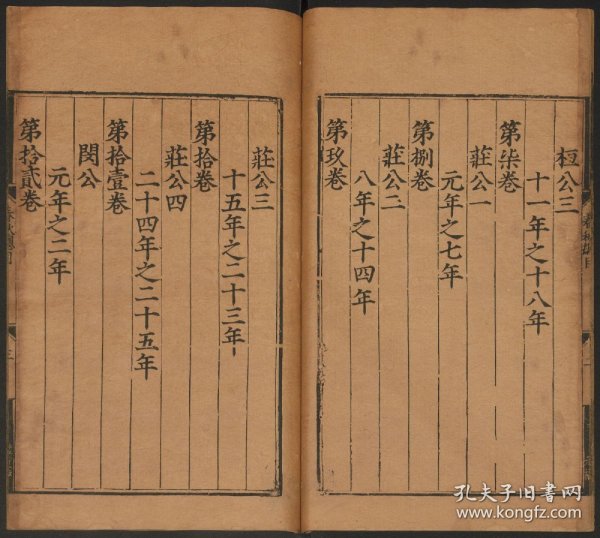 桓公三
十一年之十八年
第柒卷
莊公一
元年之七年
第捌卷
莊公二
八年之十四年
第玖卷
莊公三
十五年之二十三年
第拾卷
莊公四
二十四年之二十五年
第拾壹卷
閔公
元年之二年
第拾貳卷
孔夫子旧书网
www.kongfz.com